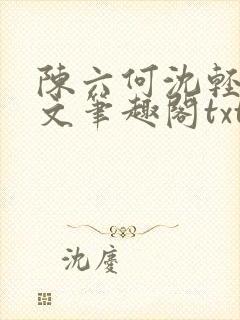 陳六何沈輕
文筆趣閣txt
沈慶